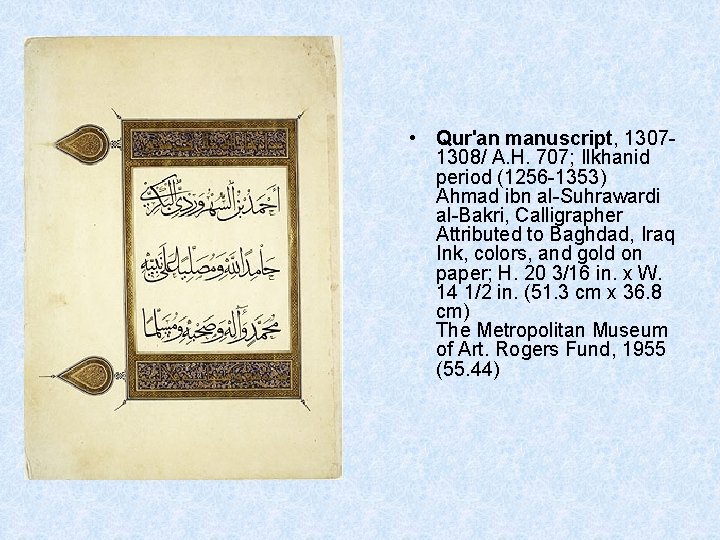 أحمد بن السهروردي البكري
حامدا لله ومصليا على نبيه
محمد وآله وصحبه ومسلما
• Qur'an manuscript, 1307-
1308/ A.H. 707; Ilkhanid
period (1256 -1353)
Ahmad ibn al-Suhrawardi
al-Bakri, Calligrapher
Attributed to Baghdad, Iraq
Ink, colors, and gold on
paper; H. 20 3/16 in. x W.
14 1/2 in. (51.3 cm x 36.8
cm)
The Metropolitan Museum
of Art. Rogers Fund, 1955
(55.44)